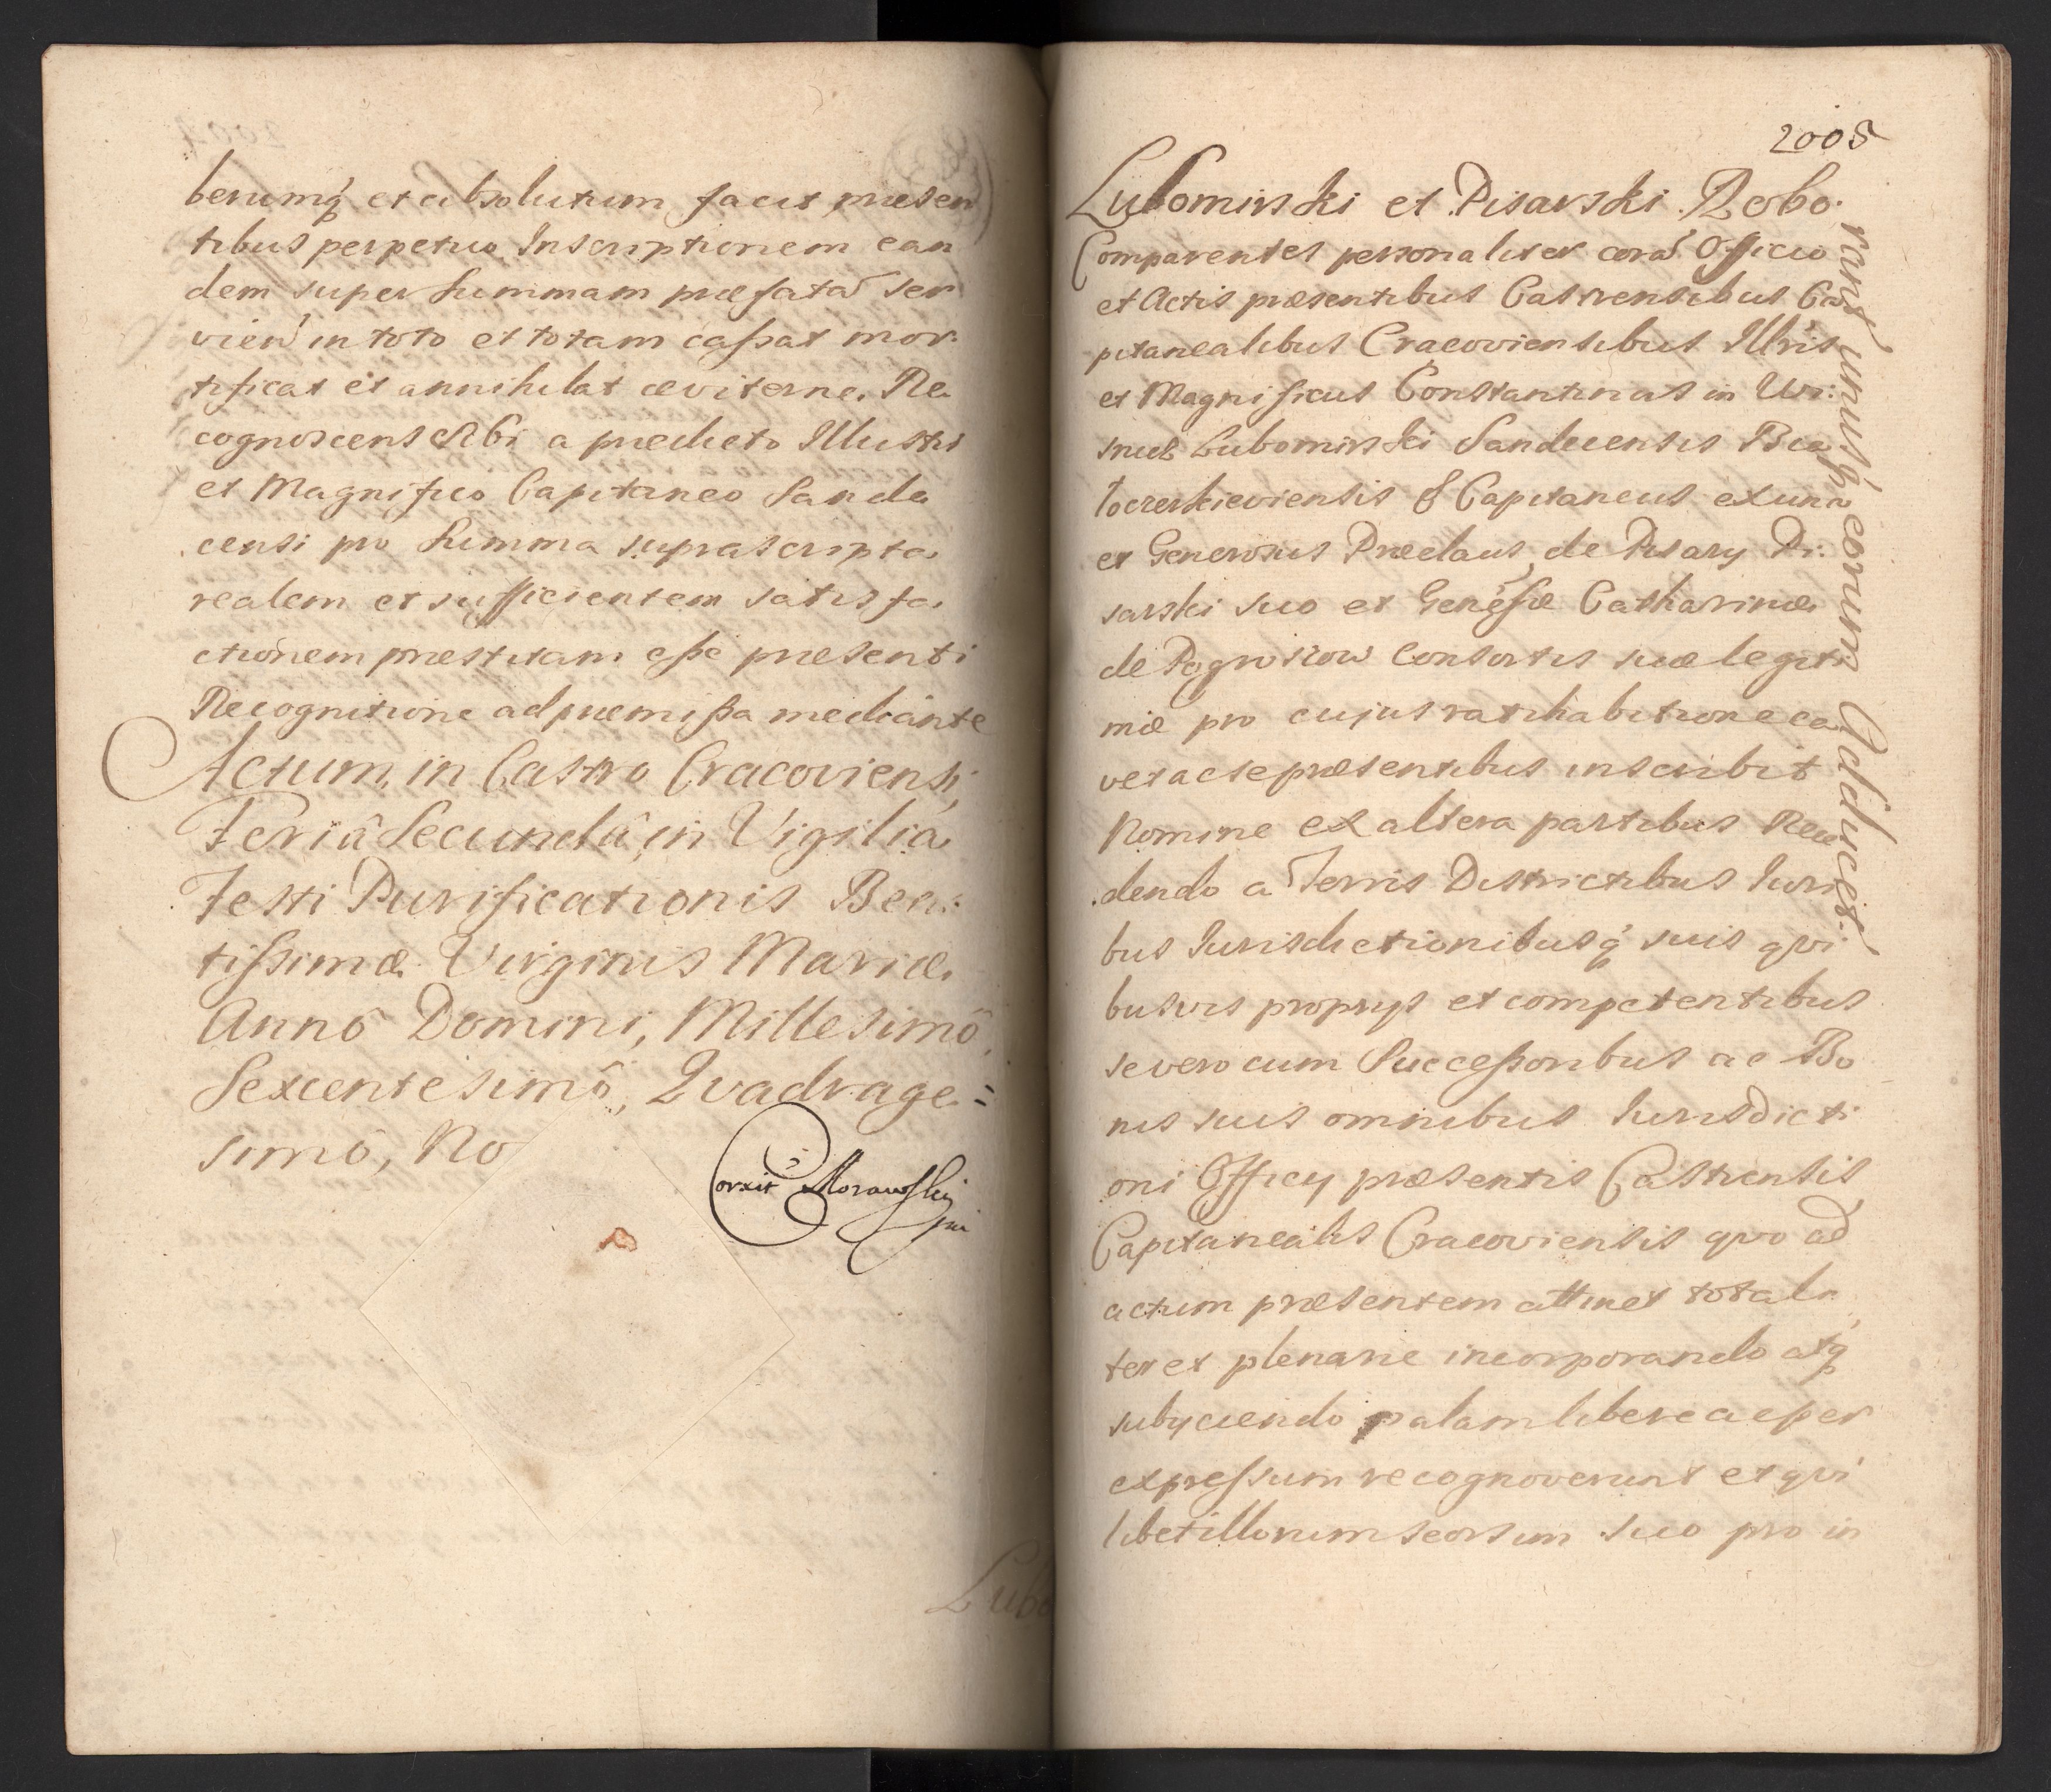 berumq́ et absolutum facit præsen
tibus perpetuo Inscriptionem ean
dem super Summam præfatã ser
vien̄ in toto et totam caſsat mor:
tificat et annihilat æviterne. Re
cognoscens sibi a prædicto Illustri
et Magnifico Capitaneo Sande
censi pro Summa suprascripta
realem et sufficientem satisfa
ctionem præstitam eſse præsenti
Recognitione ad præmiſsa mediante
Actum, in Castro Cracoviensi,
Feriâ Secundâ, in Vigilia
Festi Purificationis Bea:
tiſsimæ Virginis Mariæ
Annô Domini, Millesimô,
Sexcentesimô, Qvadrage=
simô, No
Corrit Morawski
mp
Lubo
2005
Lubomirski et Pisarski Robo:
rant unusq́ eorum Adducet.
Comparentes personaliter corã Officio
et Actis præsentibus Castrensibus Ca
pitanealibus Cracoviensibus Illr̃is
et Magnificus Constantinus in Wi:
snicz Lubomirski Sandecensis Bia
łocerkieviensis & Capitaneus ex una
et Generosus Prædaus de Pisary Pi:
sarski suo et Geneŕsæ Catharinæ
de Pogwizow Consortis suæ legiti
mæ pro cujus ratihabitione ca
vet ac se præsentibus inscribit
Nomine ex altera partibus Rece
dendo a Terris Districtibus Iuri
bus Iurisdictionibusq́ suis qvi
busvis proprys et competentibus
se vero cum Succeſsoribus ac Bo
nis suis omnibus Iurisdicti
oni Officy præsentis Castrensis
Capitanealis Cracoviensis qvo ad
actum præsentem attinet totali
ter et plenarie incorporando atq́
subyciendo palam libere ac per
expreſsum recognoverunt et qvi
libet illorum seorsim suo pro in